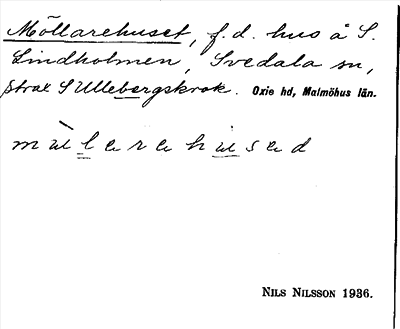 Möllarehuset, f.d. hus å S.
Lindholmen, Svedala sn,
strax S Ullebergskrok. Oxie hd, Malmöhus län.
mùlarehused
NILS NILSSON 1936.